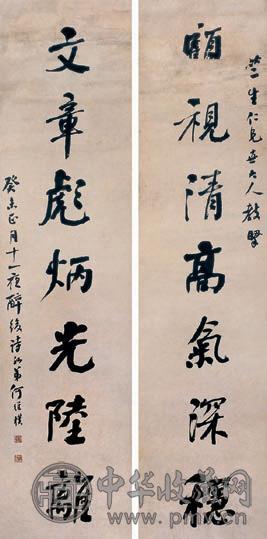 竺生仁兄世大人教
顧視清高氣深穩
文章彪炳光陸離
癸未正月十一夜醉後詩孫弟何維樸
中华收藏网